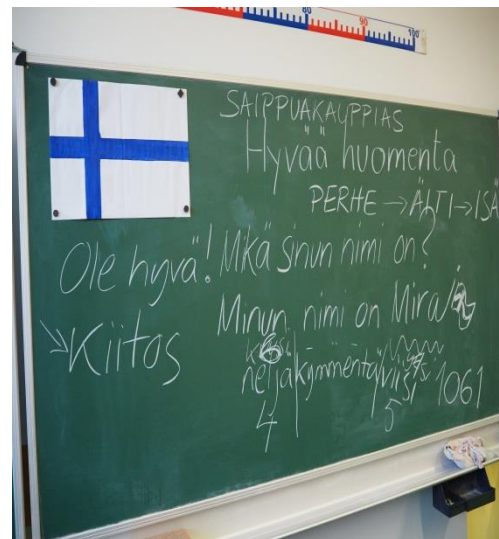 80 90 100
SAIPPUAKAUPPIAS
Hyvää huomenta
PERHE → ÄLTI → ISÄ
Ole hyvä! Mikä sinun nimi on?
Minun nimi on Mira/
→ Kiitos
neljäkymmentäviisi 1061
4 5